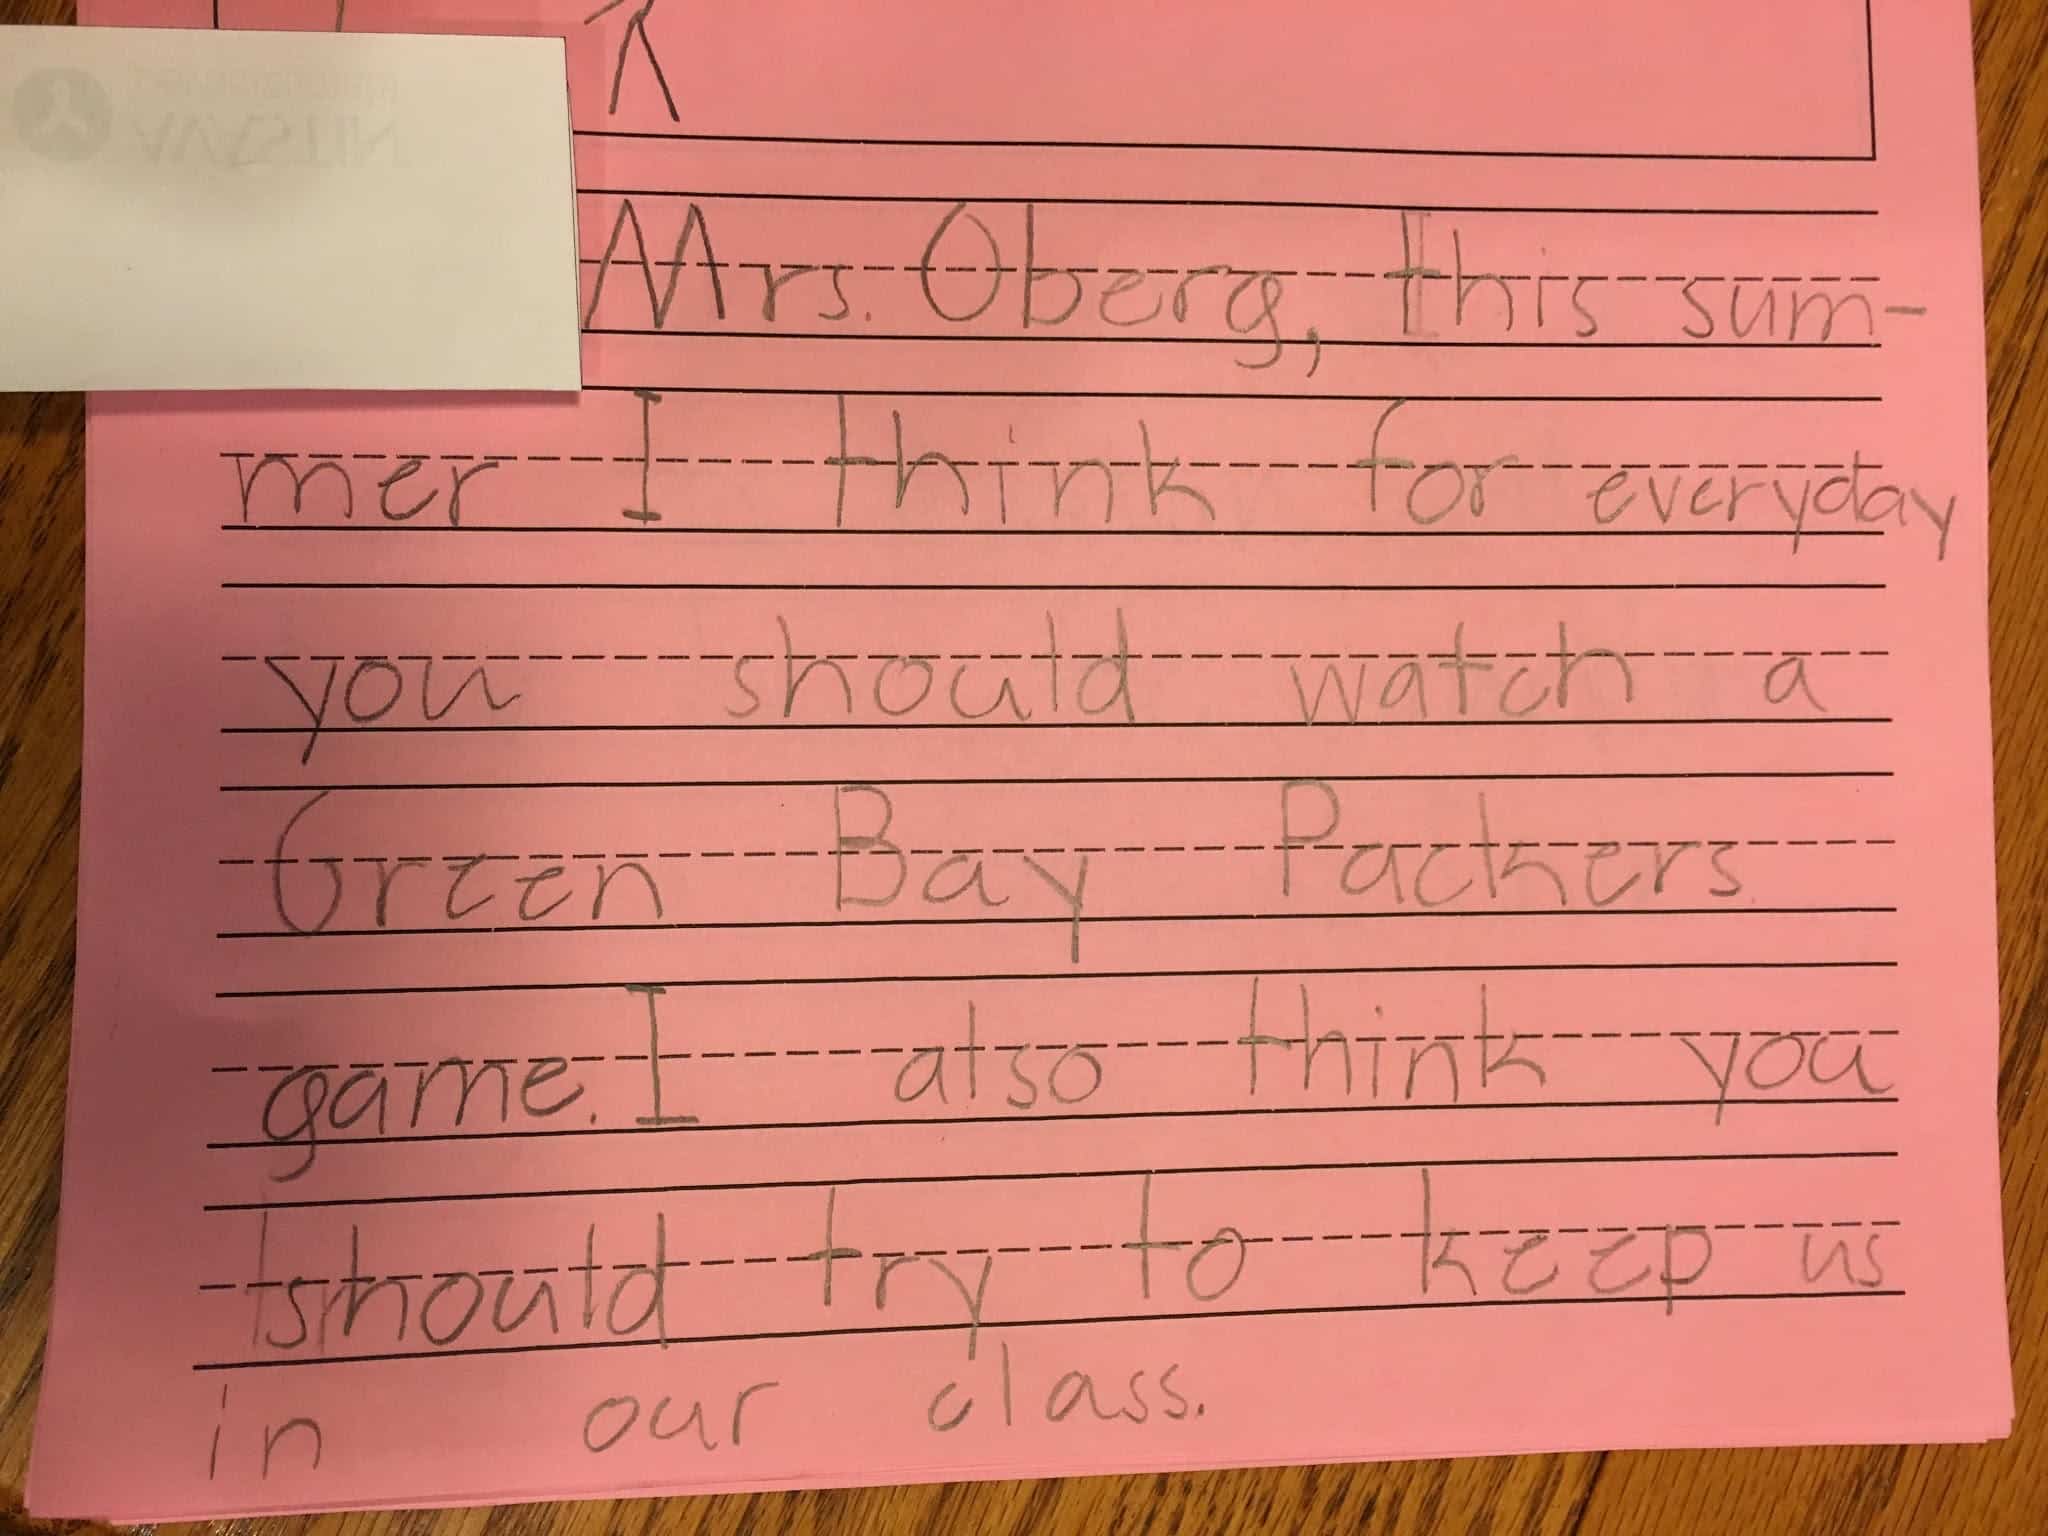 Mrs. Oberg, this sum-
mer I think for everyday
you should watch a
Green Bay Packers
game. I also think you
should try to keep us
in our class.